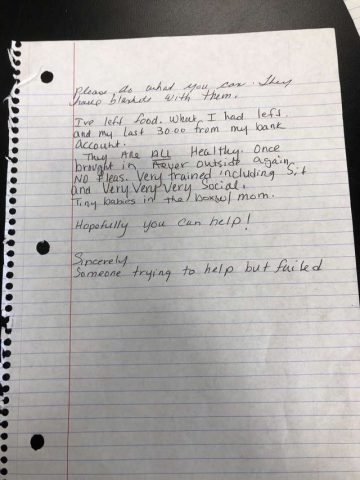 Please do what you can. They
have blankets with them.
I've left food. What I had left
and my last 30.00 from my bank
account.
They are ALL Healthy. Once
brought in Never outside again.
No Fleas. Very trained including sit
and Very Very Very Social.
Tiny babies in the box w/ mom.
Hopefully you can help!
Sincerely
Someone trying to help but failed